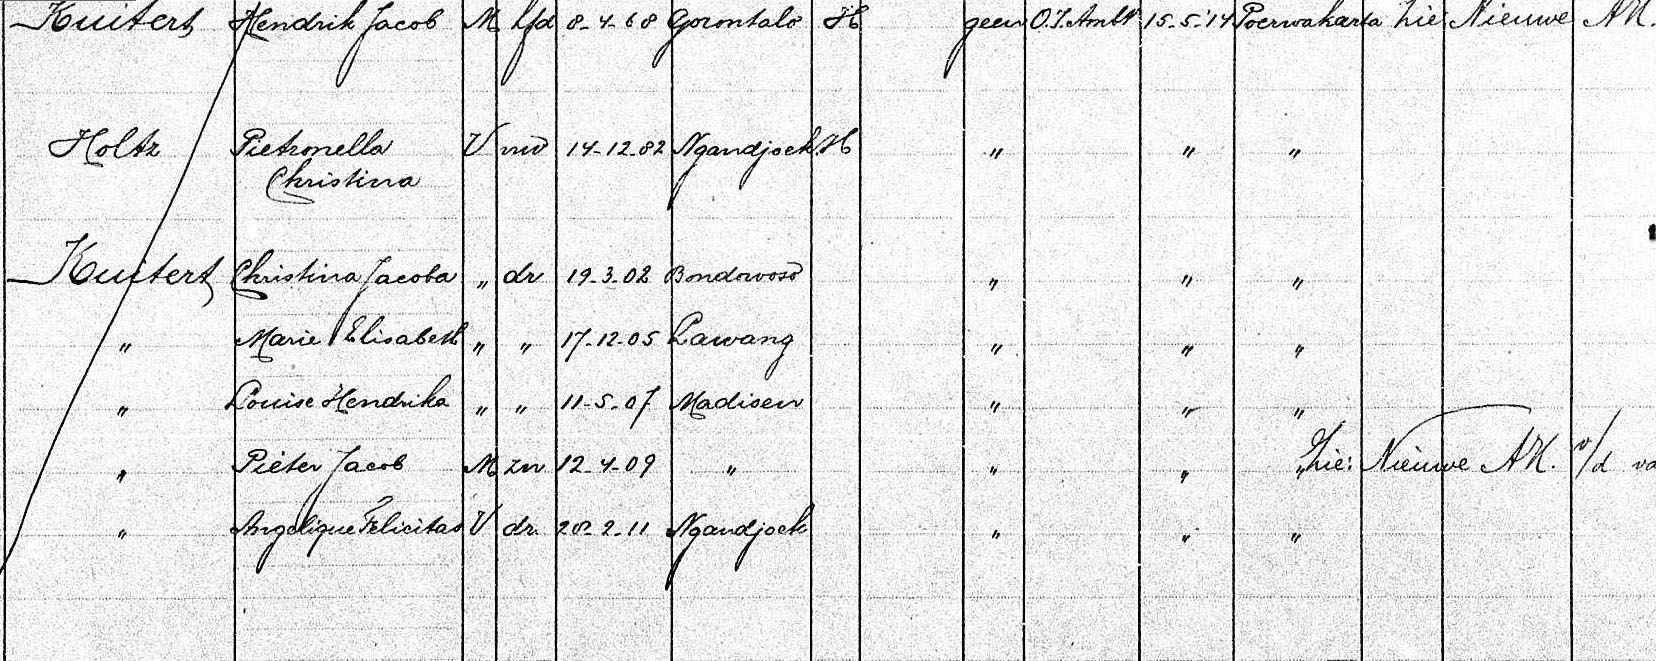 Kuitert Hendrik Jacob M hfd 8-4-68 Gorontalo H geen O.I. Ambt 15-5-'14 Poerwakarta Zie Nieuwe AK.
Holtz Pietronella V 14-12-82 Ngandjoek H " " "
Christina
Kuitert Christina Jacoba " dr 19-3-02 Bondowoso " " "
" Marie Elisabeth " " 17-12-05 Lawang " " "
" Louise Hendrika " " 11-5-07 Madioen " " "
" Pieter Jacob M zn 12-4-09 " " " " Zie: Nieuwe AK. v/d va
" Angelique Felicitas V dr. 2-11 Ngandjoek " " "